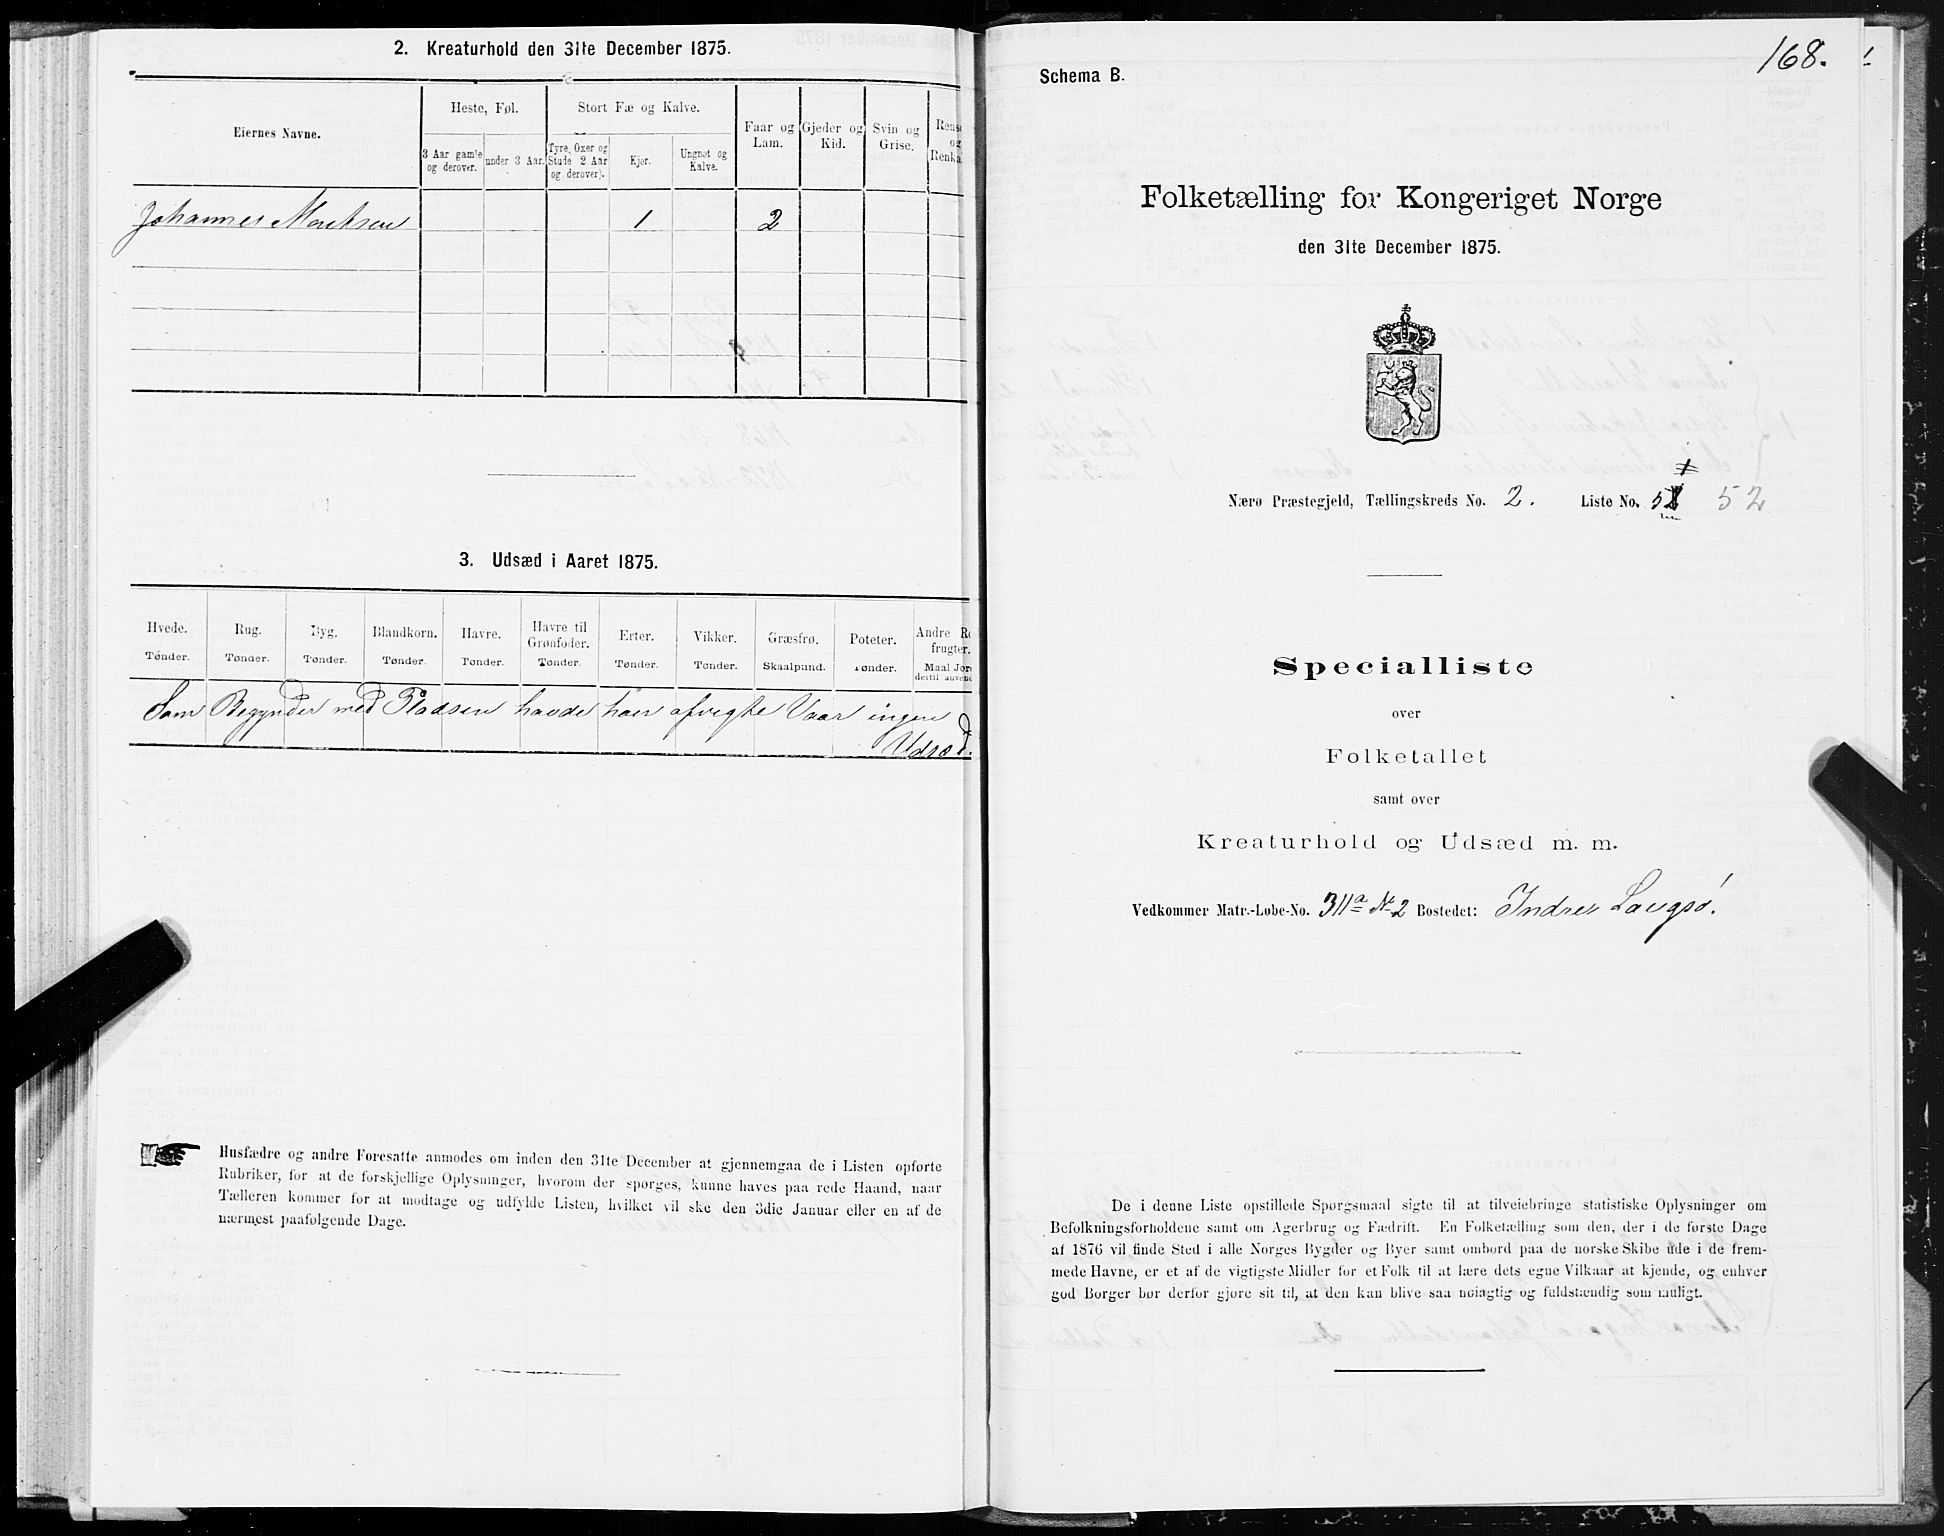 2. Kreaturhold den 31te December 1875.
Eiernes Navne.
Heste, Føl.
Stort Fæ og Kalve.
Faar og Lam.
Gjeder og Kid.
Svin og Grise.
3 Aar gamle og derover.
under 3 Aar.
Tyre, Oxer og Stude 2 Aar og derover).
Kjør.
Ungnøt og Kalve.
Johannes 1 2
3. Udsæd i Aaret 1875.
Hvede. Tønder.
Rug. Tønder.
Byg. Tønder.
Blandkorn. Tønder.
Havre. Tønder.
Havre til Grønfoder. Tønder.
Erter. Tønder.
Vikker. Tønder.
Græsfrø. Skaalpund.
Poteter. Tønder.
Som Begynder med Pladsen havde han afvigte Vaar ingen
Udsæd.
Husfædre og andre Foresatte anmodes om inden den 31te December at gjennemgaa de i Listen opførte
Rubriker, for at de forskjellige Oplysninger, hvorom der spørges, kunne haves paa rede Haand, naar
Tælleren kommer for at modtage og udfylde Listen, hvilket vil ske den 3die Januar eller en af de
nærmest paafølgende Dage.
168.
Schema B.
Folketælling for Kongeriget Norge
den 31te December 1875.
Nærø Præstegjeld, Tællingskreds No. 2. Liste No. 52
Specialliste
over
Folketallet
samt over
Kreaturhold og Udsæd m. m.
Vedkommer Matr.-Løbe-No. 311a No 2 Bostedet: Indre Laugsø.
De i denne Liste opstillede Spørgsmaal sigte til at tilveiebringe statistiske Oplysninger om
Befolkningsforholdene samt om Agerbrug og Fædrift. En Folketælling som den, der i de første Dage
af 1876 vil finde Sted i alle Norges Bygder og Byer samt ombord paa de norske Skibe ude i de frem-
mede Havne, er et af de vigtigste Midler for et Folk til at lære dets egne Vilkaar at kjende, og enhver
god Borger bør derfor gjøre sit til, at den kan blive saa nøiagtig og fuldstændig som muligt.